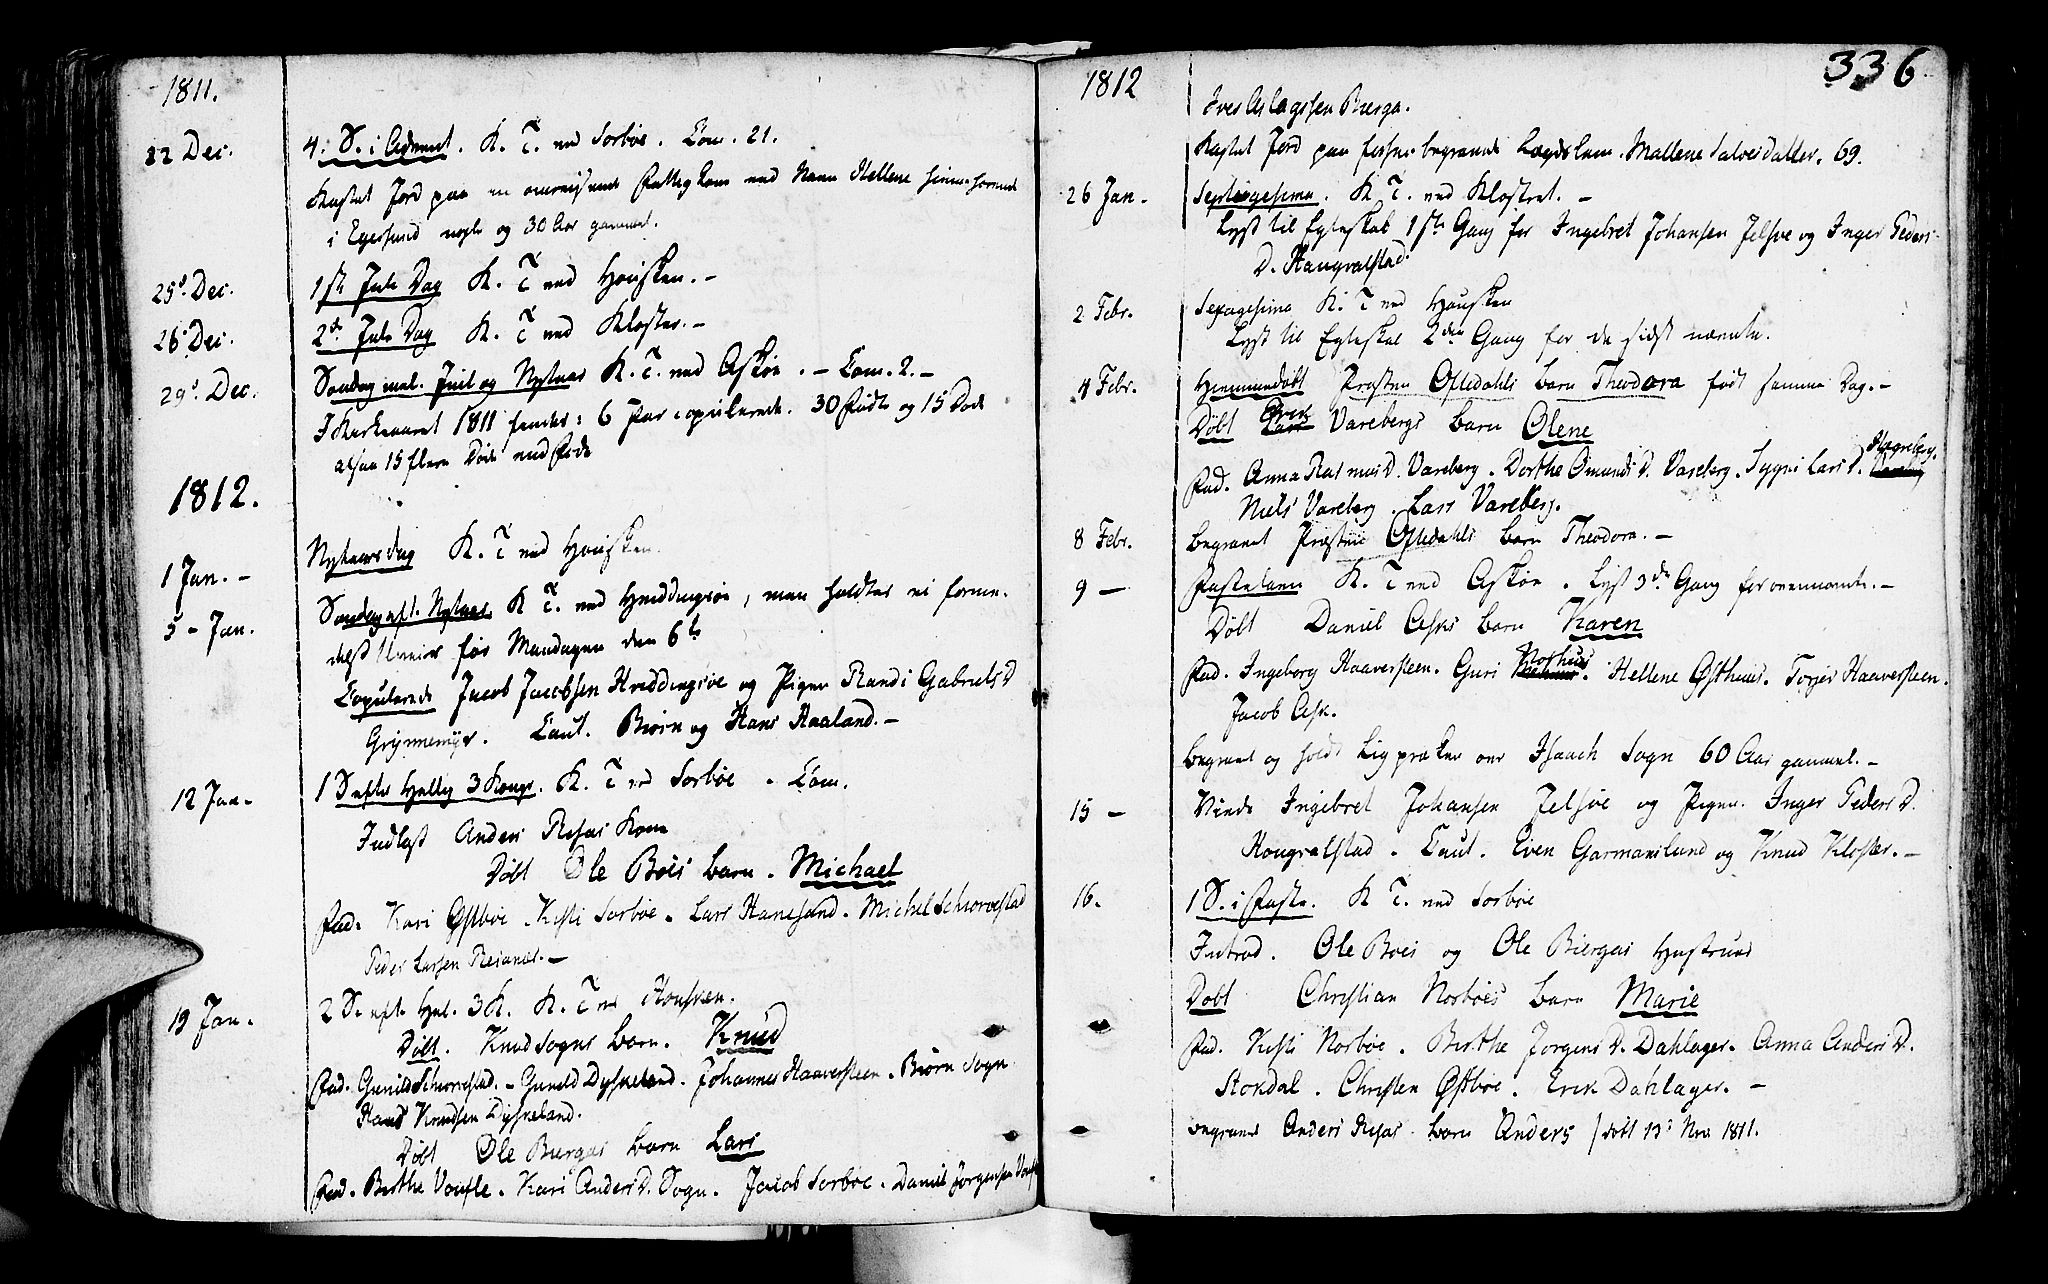 1811.
22 Dec. 4. S. i Advent. K. T. ved Sorbøe. Com. 21.
Kastet Jord paa en omreisende Fattig Kone ved Navn Hellene hiemmehørende
i Egersund nogle og 30 Aar gammel.
25d. Dec. 1ste Jule Dag K. T. ved Housken. -
26. Dec. 2de. Jule Dag K. T. ved Kloster. -
29d. Dec. Søndag mel. Juul og Nytaar K. T. ved Askøe. - Com. 2. -
I Kirkeaaret 1811 fandtes: 6 Par copulerede. 30 Fødte og 15 Døde
altsaa 15 flere
1812.
1 Jan. - Nytaarsdag K. T. ved Housken.
5 - Jan. Søndag eft. Nytaar K. T. ved Hviddingsøe, man holdtes ei forme-
delst før Mandagen den 6te
Copulerede Jacob Jacobsen Hviddingsøe og Pigen Randi Gabriels D
Grønnemyr. Caut. Biørn og Hans Haaland. -
12 Jan - 1 S efter Hellig 3 Kongr. K. T. ved Sorbøe - Com.
Indlagt Anders Kone
Døbt Ole Boes barn. Michael
Fad. Kari Østbøe. Kisti Sorbøe. Lars Hanesand. Michel Schiorvestad
Peder Larsen Reianes. -
19 Jan. 2 S. eft. Hel. 3 K. K. T. ved Housken.
Døbt. Knud Sognes barn. Knud
Fad. Gunild Schiorvestad. - Gunild Dysjeland. Johannes Haaversteen. Biørn Sogn
Hans Knudsen Dysjeland.
Døbt Ole Biergas barn Lars
Fad. Berthe Voufle. Kari Anders D. Sogn. Jacob Sorbøe. Daniel Jørgensen
336
1812
Iver Aslagssen Bierga.
Kastet Jord paa begravede Lægdslem. Mallene Salves datter. 69.
26 Jan. Septuagesima. K. T. ved Klostret. -
Lyst til Egteskab 1ste Gang for Ingebret Johansen Jelsøe og Inger Peders
D. Haugvalstad.
2 Febr. Sexagesima K. T. ved Housken
Lyst til Egteskab 2den Gang for de sidst nævnte.
4 Febr. Hiemmedøbt Præsten Oftedahls barn Theodora født samme Dag. -
Døbt Erik Varebergs barn Olene
Fad. Anna Rasmus D. Vareberg. Dorthe Omunds D. Vareberg. Sygni Lars D. Hegreberg.
Niels Vareberg. Lars Vareberg.
8 Febr. Begravet Præsten Oftedahls barn Theodora. -
9 - Fastelavn K. T. ved Askøe. Lyst 3de Gang for ovennævnte. -
Døbt Daniel Asks barn Karen
Fad. Ingeborg Haaversteen. Guri Nordhus. Hellene Østhuus. Torjer Haaversteen.
Jacob Ask.
Begravet og holdt Ligpræken over Isaach Sogn 60 Aar gammel. -
15 - Viede Ingebret Johansen Jelsøe og Pigen. Inger Peders D.
Hougvalstad. Caut. Even Garmanslund og Knud Kloster. -
16. 1 S. i Faste. K. T. ved Sorbøe
Introd. Ole Boes og Ole Biergas Hustruer
Døbt Christian Norbøes barn Marie
Fad. Kisti Norbøe. Berthe Jørgens D. Dahlager. Anna Anders D.
Stokdal. Christen Østbøe. Erik Dahlager. -
Begravet Anders barn Anders / døbt 13d Nov 1811.